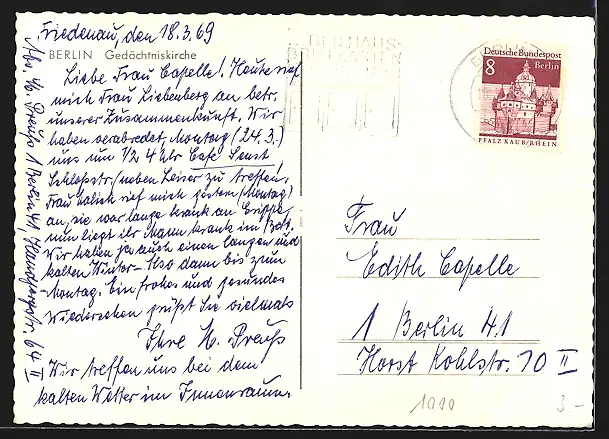 Friedenau, den 18.3.69
BERLIN Gedächtniskirche
Liebe Frau Capelle! Heute rief
mich Frau Liebenberg an betr.
unserer Zusammenkunft. Wir
haben verabredet, Montag (24.3.)
uns um 1/2 4 Uhr Café Senst,
Schloßstr. (neben Leiser zu treffen.
Frau rief mich gestern (Montag)
an, sie war lange krank an Grippe,
nun liegt ihr Mann krank im Bett.
Wir haben ja auch einen langen und
kalten Winter- Also dann bis zum
Montag. Ein frohes und gesundes
Wiedersehen grüßt Sie vielmals
Ihre M. Preuß
Wir treffen uns bei dem
kalten Wetter im Innenraum.
Abs. M. Preuß 1 Berlin 41, Handjerystr. 64 II
DER HAUS-
BRIEFKASTEN
BERLIN
Deutsche Bundespost
8 Berlin
PFALZ KAUB/RHEIN
Frau
Edith Capelle
1 Berlin 41
Horst Kohlstr. 10 II
3.-